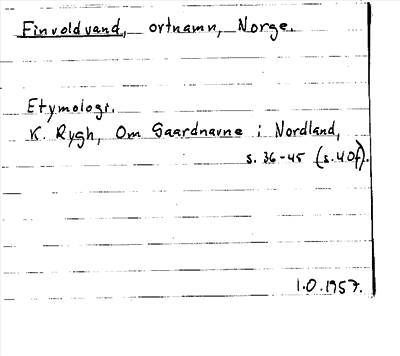 Finvoldvand, ortnamn, Norge.
Etymologi.
K. Rygh, Om Gaardnavne i Nordland,
s. 36-45 (s. 40f).
I.O. 1957.